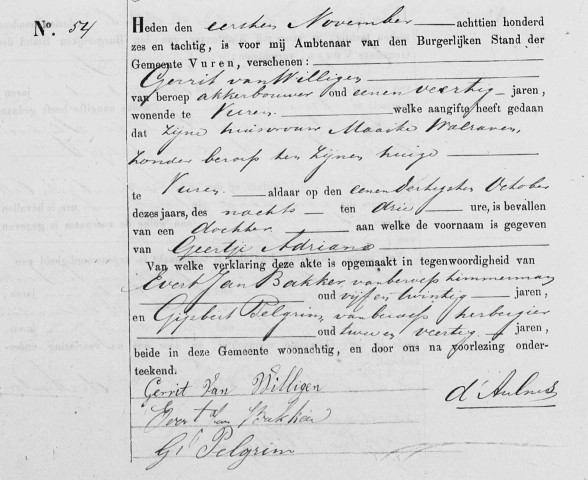 No. 54
Heden den eersten November achttien honderd
zes en tachtig, is voor mij Ambtenaar van den Burgerlijken Stand der
Gemeente Vuren, verschenen:
Gerrit van Willigen
van beroep akkerbouwer oud eenen veertig jaren,
wonende te Vuren welke aangifte heeft gedaan
dat zijne huisvrouw Maaike Walraven,
zonder beroep ten zijnen huize
te Vuren aldaar op den eenendertigsten October
dezes jaars, des nachts ten drie ure, is bevallen
van een dochter aan welke de voornaam is gegeven
van Geertje Adriana
Van welke verklaring deze akte is opgemaakt in tegenwoordigheid van
Evert Jan Bakker, van beroep timmerman
oud vijf en twintig jaren,
en Gijsbert Pelgrim, van beroep herbergier
oud twee en veertig jaren,
beide in deze Gemeente woonachtig, en door ons na voorlezing onder-
teekend.
Gerrit Van Willigen
d'Aulnis
Evert Jan Bakker
G Pelgrim